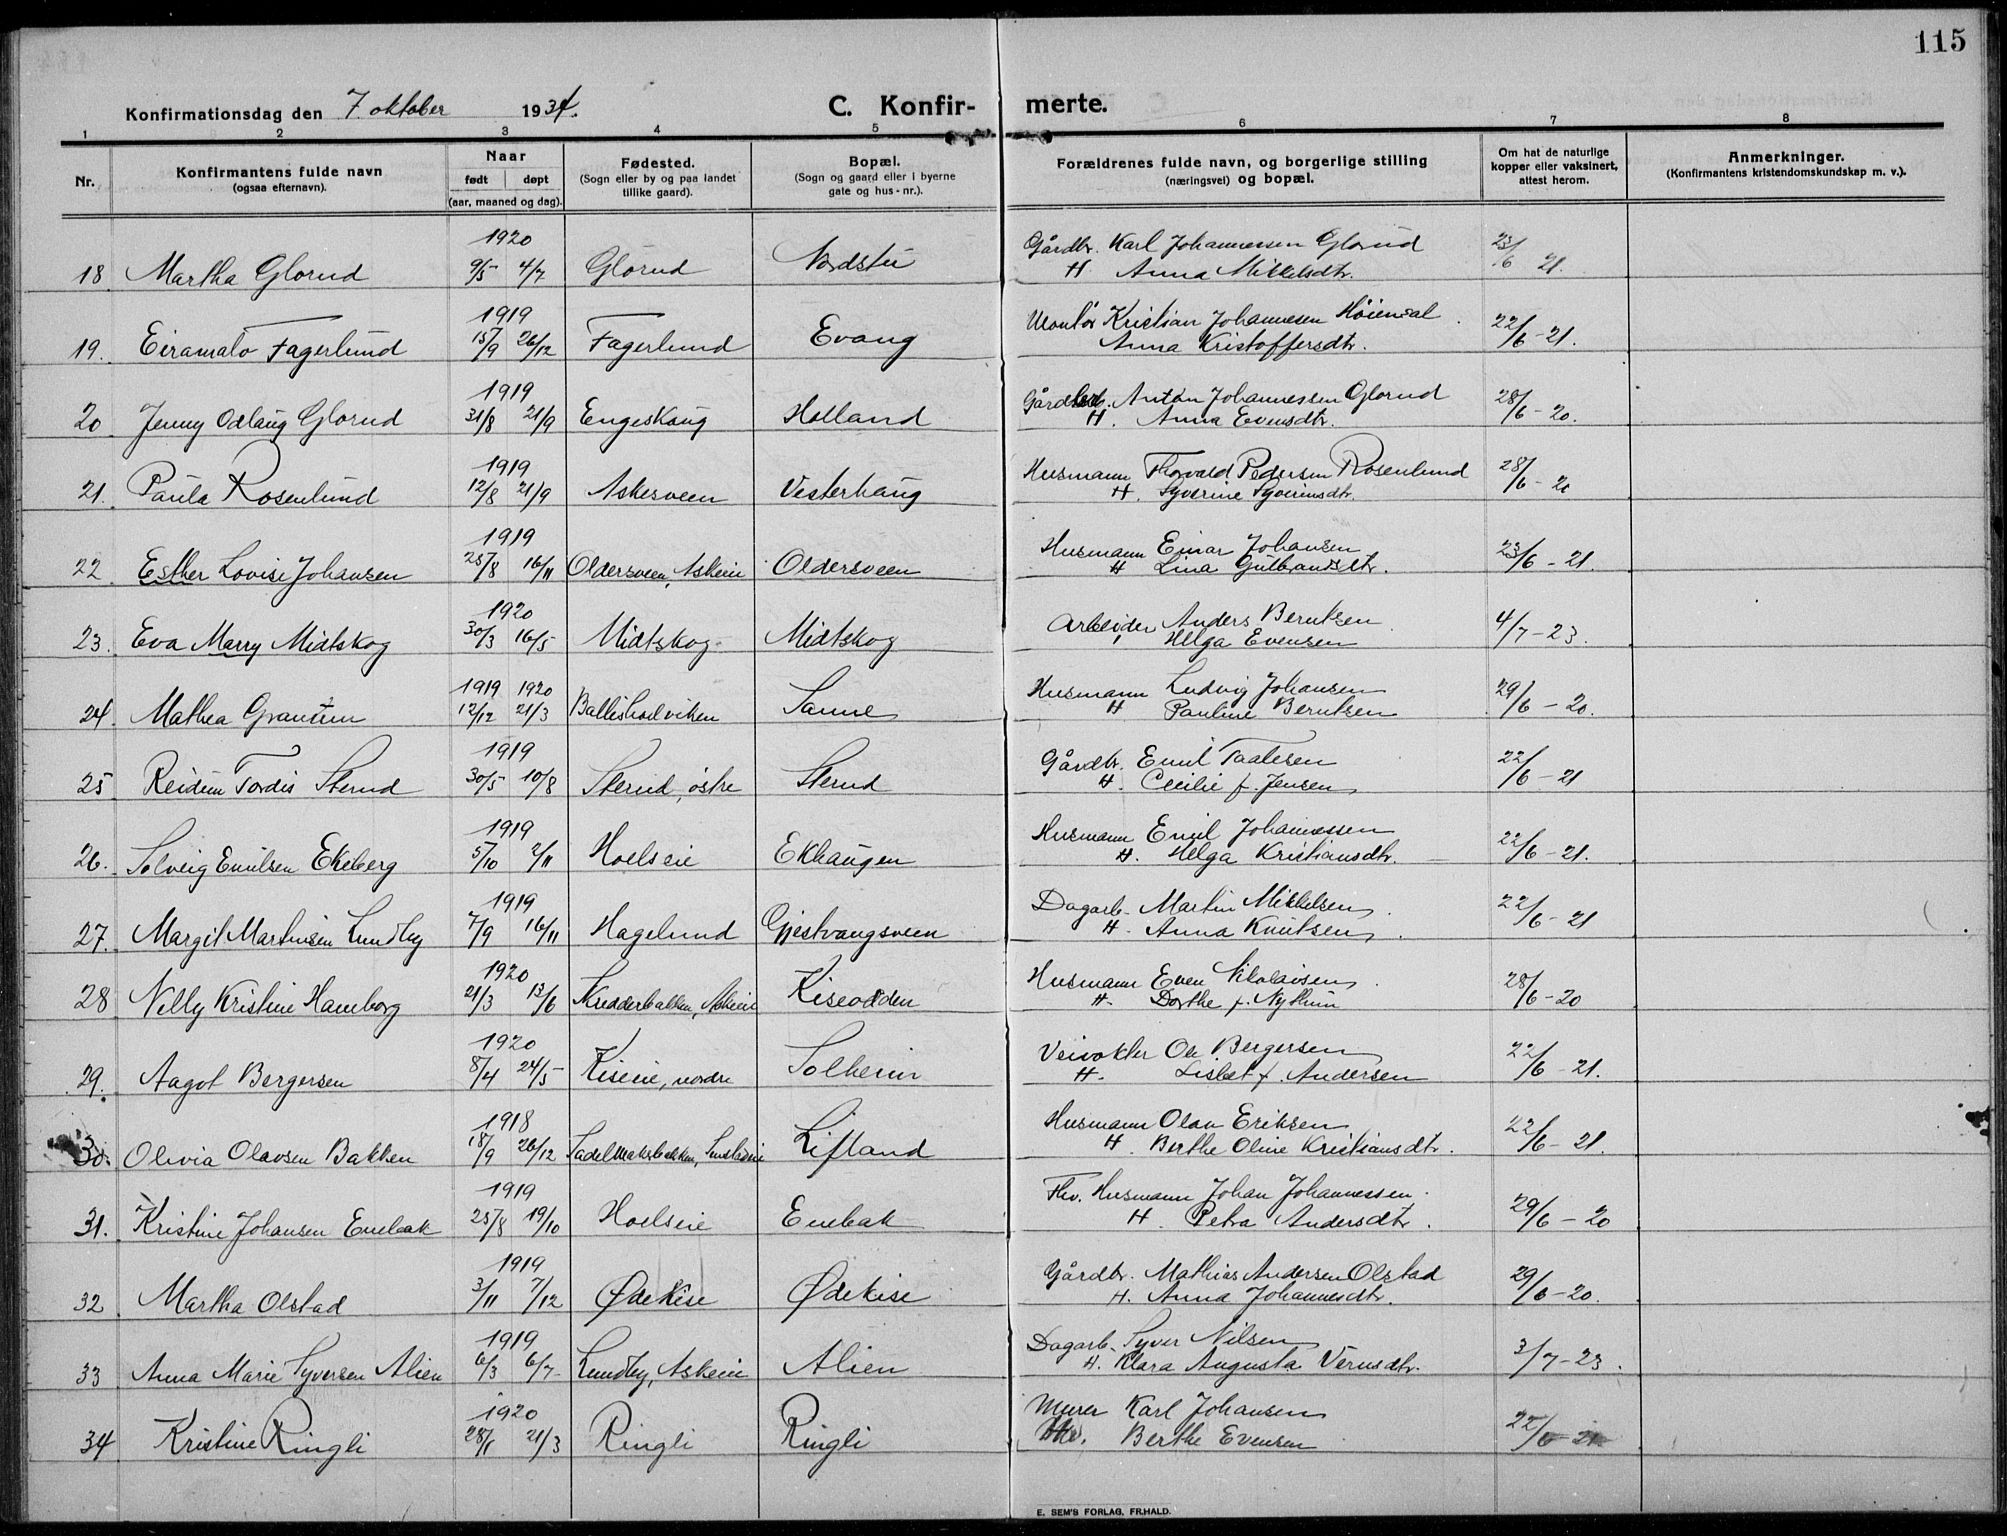 115
Konfirmationsdag den 7. oktober 1934. C. Konfir- merte.
1 2 3 4 5 6 7 8
Nr. Konfirmantens fulde navn (ogsaa efternavn). Naar født døpt (aar, maaned og dag). Fødested. (Sogn eller by og paa landet tillike gaard). Bopæl. (Sogn og gaard eller i byerne gate og hus-nr.). Forældrenes fulde navn, og borgerlige stilling (næringsvei) og bopæl. Om hat de naturlige kopper eller vaksinert, attest herom. Anmerkninger. (Konfirmantens kristendomskundskap m. v.).
1920 Gårdbr. Karl Johannessen Glorud
18 Martha Glorud 9/5 4/7 Glorud Nordstu H. Anna Mikkelsdtr. 23/6 21.
1919 Montør Kristian Johannesen
19. Fagerlund 15/9 26/12 Fagerlund Evang Anna Kristoffersdtr. 22/6 - 21.
1919 Anton Johannessen Glorud
20 Jenny Odlaug Glorud 31/8 21/9 Engeskaug Holland H. Anna Evensdtr. 28/6 - 20.
1919 Husmann Thorvald Pedersen Rosenlund
21. Paula Rosenlund 12/8 21/9 Askersveen Vesterhaug H. Syverine Syverinsdtr. 28/6 - 20
1919 Husmann Einar Johansen
22 Esther Lovise Johansen 25/8 16/11 Oldersveen, Askeie Oldersveen H Lina Gulbrandsdtr. 23/6 - 21.
1920 Arbeider Anders Berntsen
23. Eva Marry Midtskog 30/3 16/5 Midtskog Midtskog Helga Evensen 4/7 - 23.
1919 1920 Husmann Ludvig Johansen
24. Mathea Grantun 12/12 21/3 Sanne H Pauline Berntsen 29/6 - 20.
1919 Gårdbr. Emil Taalesen
25. Reidun Tordis Sterud 30/5 10/8 Sterud, østre Sterud H. Cecilie f. Jensen 22/6 - 21
1919 Husmann Emil Johannessen
26. Solveig Emilsen Ekeberg 5/10 2/11 Hoelseie Ekhaugen H. Helga Kristiansdtr. 22/6 - 21.
1919 Dagarb. Martin Mikkelsen
27. Margit Martinsen Lundby 7/9 16/11 Hagelund Gjestvangsveen H. Anna Knutsen 22/6 - 21
1920 Husmann Even Nikolaisen
28 Nelly Kristine Hamborg 21/3 13/6 Askeie Kiseodden H. Dorthe f. Nythun 28/6 - 20
1920 Veivokter Ole Bergersen
29. Aagot Bergersen 8/4 24/5 Kiseie, nordre Solheim H. Lisbet f. Andersen 22/6 - 21.
1918 Husmann Olav Eriksen
30. Olivia Olavsen Bakken 18/9 26/12 Sadelmakerbakken, Lifland H Berthe Oline Kristiansdtr. 22/6 - 21.
1919 Fhv. Husmann Johan Johannessen
31. Kristine Johansen Enebak 25/8 19/10 Hoelseie Enebak H. Petra Andersdtr. 29/6 - 20
1919 Gårdbr. Mathias Andersen Olstad
32 Martha Olstad 3/11 7/12 Ødekise Ødekise H. Anna Johannesdtr. 29/6 - 20.
1919 Dagarb. Syver Nilsen
33 Anna Marie Syversen Alien 6/3 6/7 Lundby, Askeie Alien H. Klara Augusta Vernsdtr. 3/7 - 23.
1920 Murer Karl Johansen
34 Kristine Ringli 28/1 21/3 Ringli Ringli Berthe Evensen 22/6 - 21
E. SEM'S FORLAG, FR.HALD.